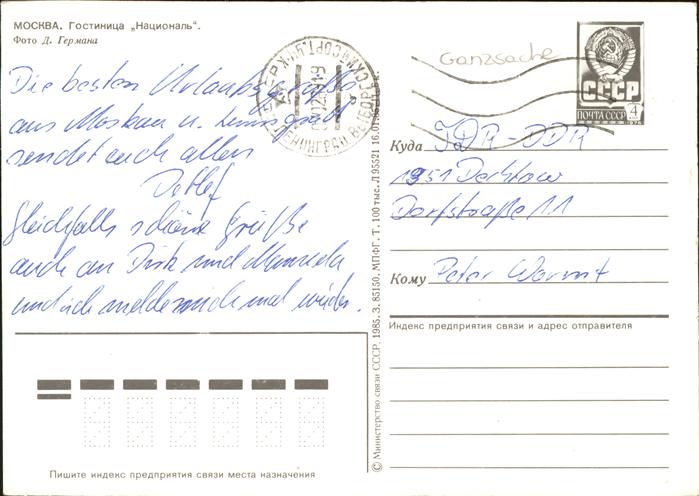 МОСКВА. Гостиница „Националь“.
Фото Д. Германа
Die besten Urlaubsgrüße
aus Moskau u. Leningrad
sendet euch allen
Detlef
Gleichfalls schöne Grüße
auch an Dirk und Manuela
und ich melde mich mal wieder.
Пишите индекс предприятия связи места назначения
© Министерство связи СССР, 1985. З. 85150. МПФГ. Т. 100 тыс. Л 95521 16.01.85
ЛЕНИНГРАД
Ganzsache
СССР
ПОЧТА СССР 4
1974
Куда DDR
1951 Dechtow
Dorfstraße 11
Кому Peter
Индекс предприятия связи и адрес отправителя